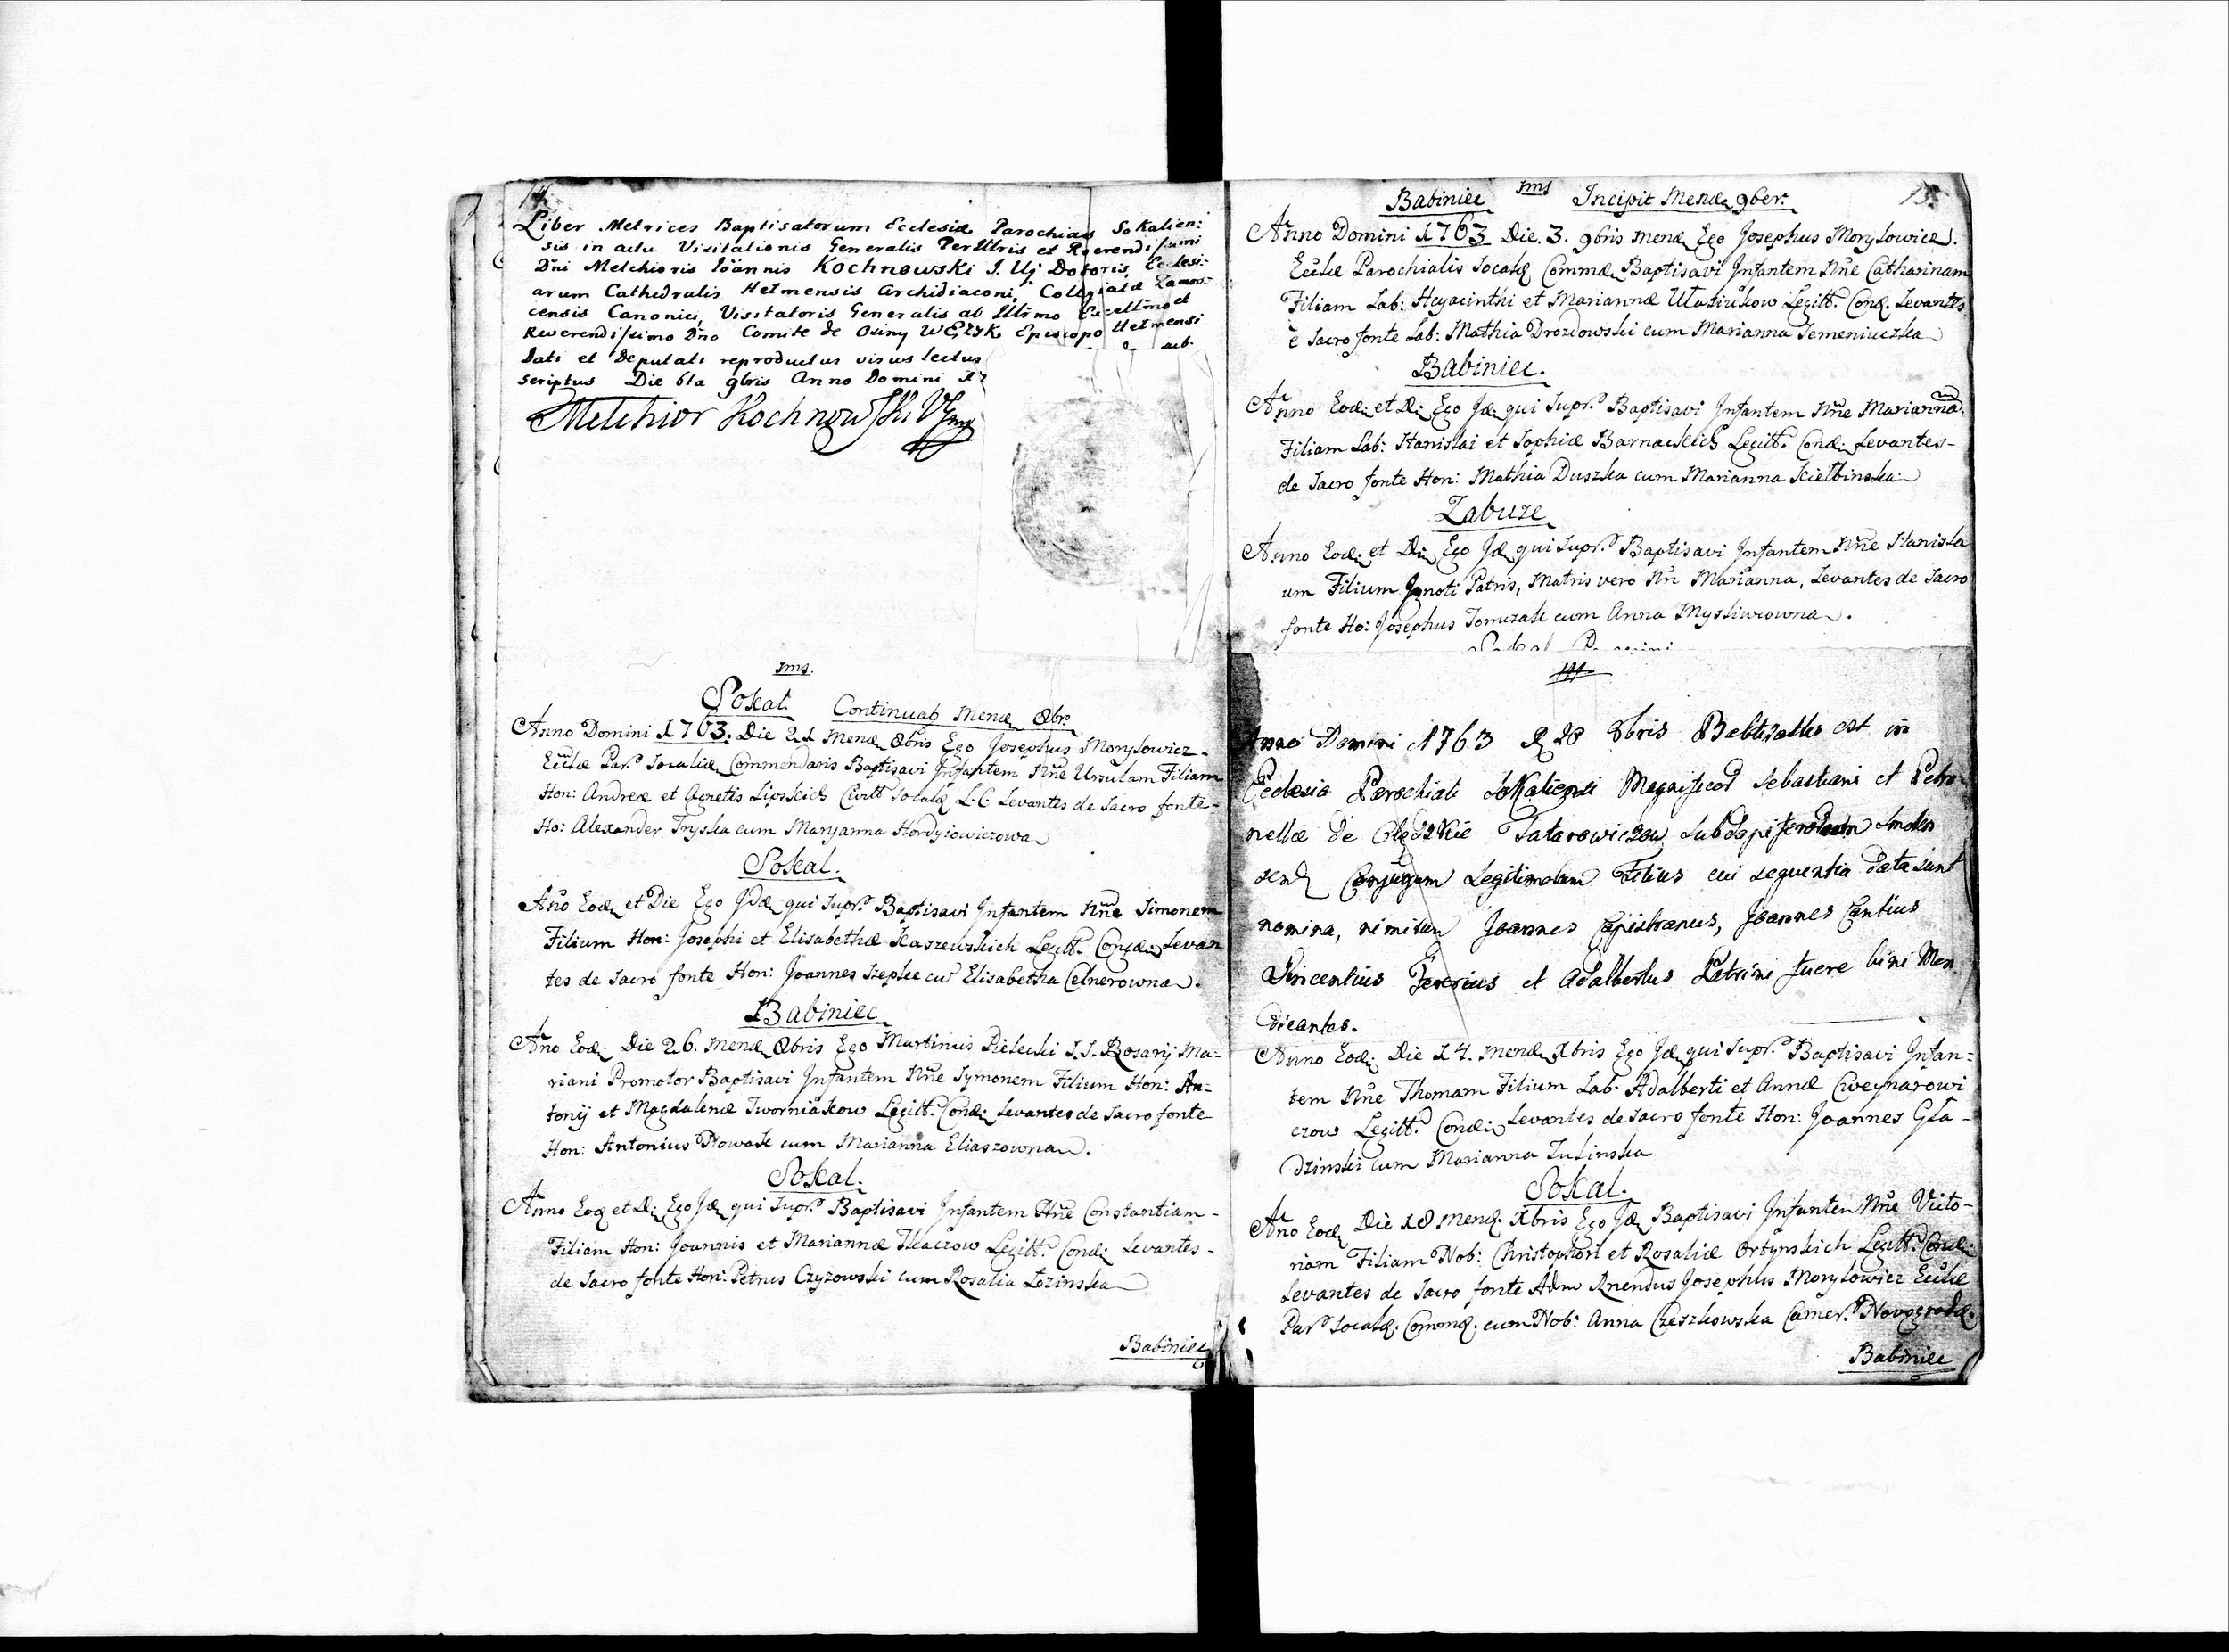 14.
Liber Metrices Baptisatorum Ecclesiæ Parochialis Sokalien:
sis in actu Visitationis Generalis PerIllris et Reverendissimi
Dñi Melchioris Ioannis Kochnowski I. Uj Doctoris, Ecclesi:
arum Cathedralis Helmensis Archidiaconi, Collegiatæ Zamos:
censis Canonici, Visitatoris Generalis ab Illrmo Excellmo et
Reverendissimo Dno Comite de Osiny WĘŻYK Episcopo Helmensi
dati et Deputati reproductus visus lectus sub:
scriptus Die 6ta 9bris Anno Domini 17
Melchior Kochnowski
Jms.
Sokal. Continuat Mense 8br.
Anno Domini 1763. Die 21 Mense 8bris Ego Josephus Moryłowicz
Eccliæ Par. Socaliæ Commendaris Baptisavi Infantem Nñe Ursulam Filiam
Hon: Andreæ et Agnetis Lipskich L. C. Levantes de Sacro fonte
Ho: Alexander Tryska cum Maryanna Hordyiowiczowa
Sokal.
Año Eod. et Die Ego Id. qui Supr. Baptisavi Infantem Nñe Simonem
Filium Hon: Josephi et Elisabethæ Kaszewskich Legitt. Cond. Levan
tes de Sacro fonte Hon: Joannes Szepke cu Elisabetha Celnerowna.
Babiniec
Año Eod. Die 26. Mense 8bris Ego Martinus Pielecki S. S. Rosarij Ma:
riani Promotor Baptisavi Infantem Nñe Symonem Filium Hon: An=
tonij et Magdalenæ Tworniakow Legitt. Cond. Levantes de Sacro fonte
Hon: Antonius Nowak cum Marianna Eliaszowna.
Sokal.
Anno Eod et D. Ego Id. qui Supr. Baptisavi Infantem Nñe Constantiam
Filiam Hon: Joannis et Mariannæ Tkaczow Legitt. Cond. Levantes
de Sacro fonte Hon: Petrus Czyzowski cum Rosalia Łozinska
Babiniec
15.
Babiniec Jms Incipit Mense 9ber.
Anno Domini 1763 Die. 3. 9bris Mense Ego Josephus Moryłowicz.
Eccliæ Parochialis Socal. Comm. Baptisavi Infantem Nñe Catharinam
Filiam Lab: Hyacinthi et Mariannæ Ułasiukow Legitt. Cond. Levantes
è Sacro fonte Lab: Mathia Drozdowski cum Marianna Semeniuczka
Babiniec.
Anno Eod. et D. Ego Id. qui Supr. Baptisavi Infantem Nñe Marianna.
Filiam Lab: Stanislai et Sophiæ Barnackich Legitt. Cond. Levantes
de Sacro fonte Hon: Mathia Duszka cum Marianna Kiełbinska
Zabuze
Anno Eod. et D. Ego Id. qui Supr. Baptisavi Infantem Nñe Stanisla
um Filium Ignoti Patris, Matris vero Nñ Marianna, Levantes de Sacro
fonte Ho: Josephus Tomczak cum Anna Mysliwcowna.
Anno Domini 1763 D 28 8bris Babtizattus est in
Ecclesia Parochiali Sokaliensi Magnificor Sebastiani et Petro
nellæ de Tatarowiczow
Conjugum Legitimorum Filius cui sequentia data sunt
nomina, nimirum Joannes Capistranus, Joannes Cantius
Vincentius Fererius et Adalbertus Patrini fuere bini Men
dicantes.
Anno Eod. Die 14. Mense Xbris Ego Id. qui Supr. Baptisavi Infan=
tem Nñe Thomam Filium Lab. Adalberti et Annæ Cweynarowi
czow Legitt. Cond. Levantes de Sacro fonte Hon: Joannes Gła-
dzinski cum Marianna Zulinska
Sokal.
Año Eod. Die 18 Mens. Xbris Ego Id. Baptisavi Infantem Nñe Victo-
riam Filiam Nob: Christophori et Rosaliæ Ortynskich Legitt. Cond.
Levantes de Sacro fonte Adm Rnendus Josephus Moryłowicz Eccliæ
Par. Socal. Comm. cum Nob: Anna Czeszkowska Camer. Novogrod.
Babiniec